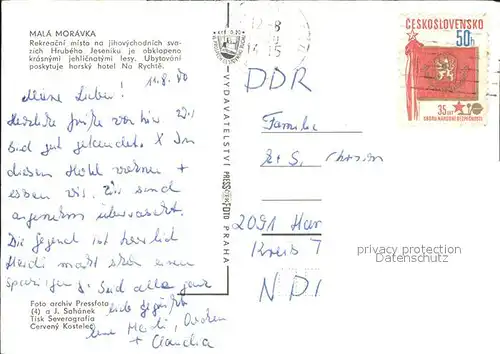 MALÁ MORÁVKA
Rekreační místo na jihovýchodních sva-
zích Hrubého Jeseníku je obklopeno
krásnými jehličnatými lesy. Ubytování
poskytuje horský hotel Na Rychtě.
11.8.80
Meine Lieben!
Herzliche Grüße von hier. Wir
sind gut gelandet. X In
diesem Hotel wohnen +
essen wir. Wir sind
angenehm überrascht.
Die Gegend ist herrlich
Heidi macht schon einen
Seid alle ganz
lieb gegrüßt
Heidi,
+ Claudia
Foto archiv Pressfoto
(4) a J. Sahánek
Tisk Severografia
Červený Kostelec
VYDAVATELSTVÍ PRESSFOTO PRAHA
ČESKOSLOVENSKO
50h
35 LET
SBORU NÁRODNÍ BEZPEČNOSTI
DDR
Familie
2091
Kreis T
privacy protection
DATENSCHUTZ